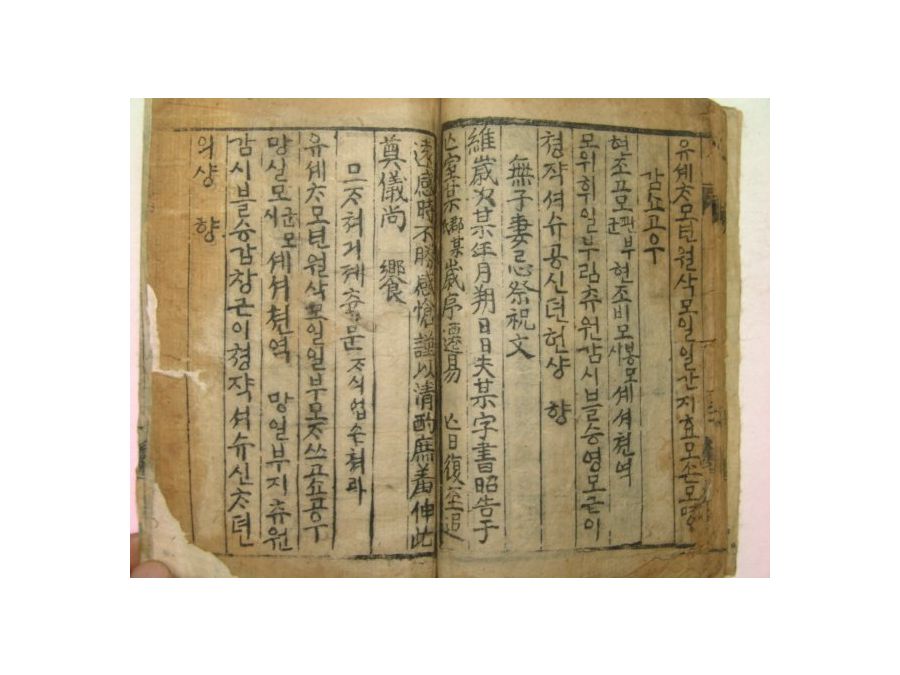 유셰ᄎᆞ모년원삭모일일간지효모손모명
감쇼고우
현조고모관부군현조비모봉모시셰셔쳔역
모위휘일부림츄원감시블승영모근이
쳥쟉셔슈공신뎐헌샹 향
無子妻忌祭祝文
維歲次某年月朔日日夫某字書昭告于
亡室某鄕某歲序遷易 亡日復至追
遠感時不勝感愴謹以清酌庶羞伸此
奠儀尚 饗
므ᄌᆞ쳐긔졔츅문ᄌᆞ식업손쳐라
유셰ᄎᆞ모년원삭모일일부모ᄌᆞ쓰고쇼고우
망실모군모시셰셔쳔역 망일부지츄원
감시블승감창근이쳥쟉셔슈신ᄎᆞ뎐
의샹 향